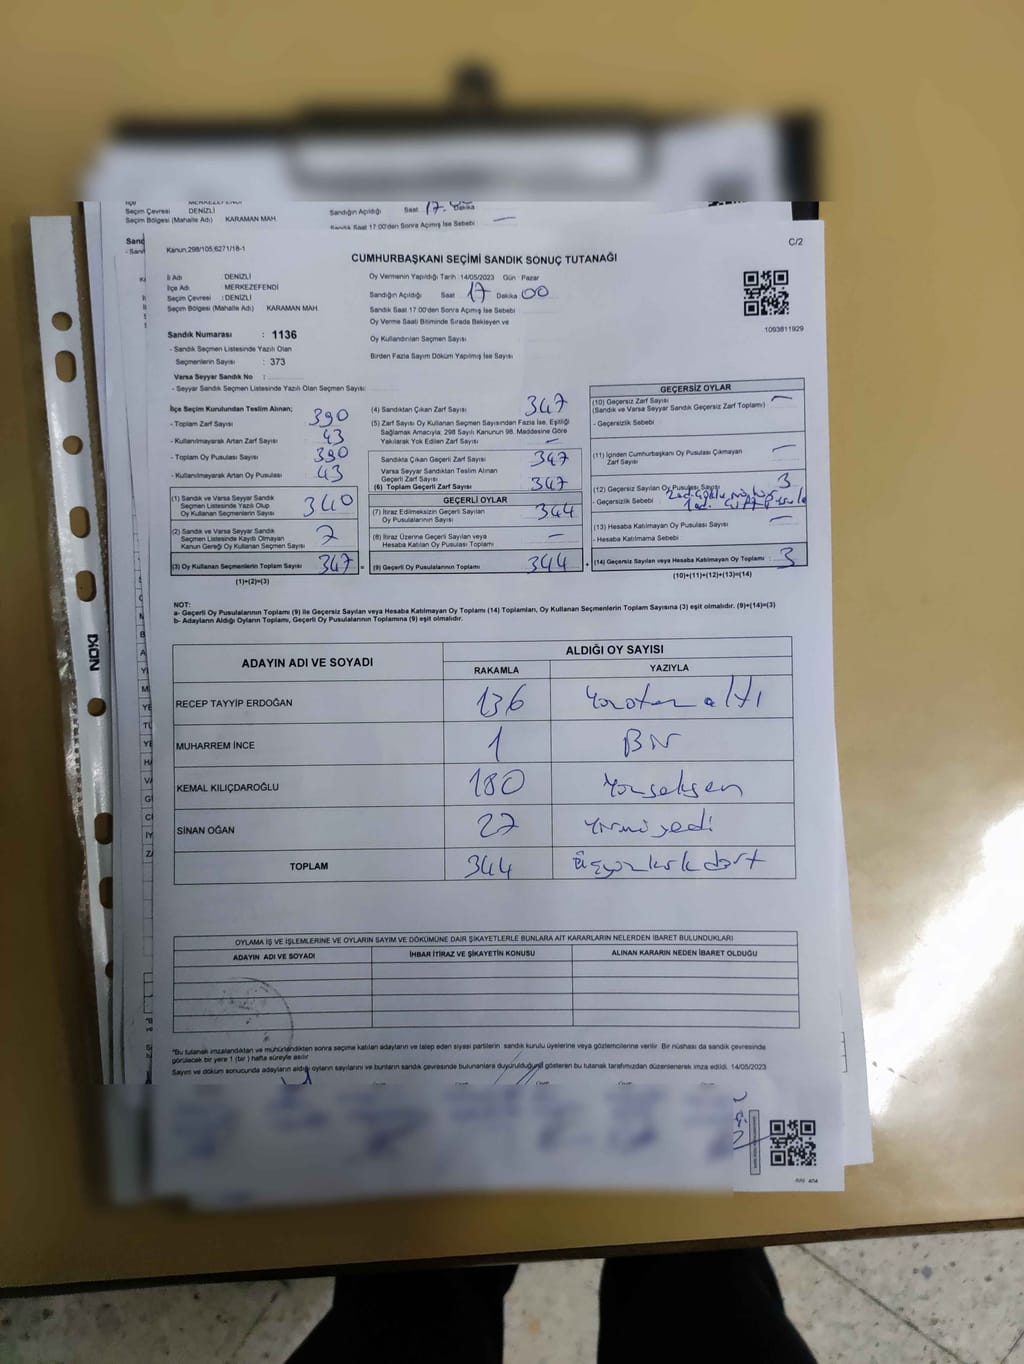 MERKEZEFENDİ
Seçim Çevresi DENİZLİ
Seçim Bölgesi (Mahalle Adı) KARAMAN MAH.
Sandığın Açıldığı Saat 17. Dakika
Sandık Saat 17:00'den Sonra Açılmış İse Sebebi —
Kanun:298/105;6271/18-1
C/2
CUMHURBAŞKANI SEÇİMİ SANDIK SONUÇ TUTANAĞI
İl Adı DENİZLİ
İlçe Adı MERKEZEFENDİ
Seçim Çevresi : DENİZLİ
Seçim Bölgesi (Mahalle Adı) KARAMAN MAH.
Oy Vermenin Yapıldığı Tarih :14/05/2023 Gün : Pazar
Sandığın Açıldığı Saat 17 Dakika 00
Sandık Saat 17:00'den Sonra Açılmış İse Sebebi
Oy Verme Saati Bitiminde Sırada Bekleyen ve
Oy Kullandırılan Seçmen Sayısı
Birden Fazla Sayım Döküm Yapılmış İse Sayısı
1093811929
Sandık Numarası : 1136
- Sandık Seçmen Listesinde Yazılı Olan
Seçmenlerin Sayısı : 373
Varsa Seyyar Sandık No :
- Seyyar Sandık Seçmen Listesinde Yazılı Olan Seçmen Sayısı
İlçe Seçim Kurulundan Teslim Alınan;
- Toplam Zarf Sayısı 390
- Kullanılmayarak Artan Zarf Sayısı 43
- Toplam Oy Pusulası Sayısı 390
- Kullanılmayarak Artan Oy Pusulası 43
(1) Sandık ve Varsa Seyyar Sandık
Seçmen Listesinde Yazılı Olup
Oy Kullanan Seçmenlerin Sayısı 340
(2) Sandık ve Varsa Seyyar Sandık
Seçmen Listesinde Kayıtlı Olmayan
Kanun Gereği Oy Kullanan Seçmen Sayısı 7
(3) Oy Kullanan Seçmenlerin Toplam Sayısı 347 =
(1)+(2)=(3)
(4) Sandıktan Çıkan Zarf Sayısı 347
(5) Zarf Sayısı Oy Kullanan Seçmen Sayısından Fazla İse, Eşitliği
Sağlamak Amacıyla; 298 Sayılı Kanunun 98. Maddesine Göre
Yakılarak Yok Edilen Zarf Sayısı —
Sandıkta Çıkan Geçerli Zarf Sayısı 347
Varsa Seyyar Sandıktan Teslim Alınan
Geçerli Zarf Sayısı
(6) Toplam Geçerli Zarf Sayısı 347
GEÇERLİ OYLAR
(7) İtiraz Edilmeksizin Geçerli Sayılan
Oy Pusulalarının Sayısı 344
(8) İtiraz Üzerine Geçerli Sayılan veya
Hesaba Katılan Oy Pusulası Toplamı —
(9) Geçerli Oy Pusulalarının Toplamı 344 +
GEÇERSİZ OYLAR
(10) Geçersiz Zarf Sayısı —
(Sandık ve Varsa Seyyar Sandık Geçersiz Zarf Toplamı)
- Geçersizlik Sebebi
(11) İçinden Cumhurbaşkanı Oy Pusulası Çıkmayan
Zarf Sayısı —
(12) Geçersiz Sayılan Oy Pusulası Sayısı 3
- Geçersizlik Sebebi
(13) Hesaba Katılmayan Oy Pusulası Sayısı —
- Hesaba Katılmama Sebebi
(14) Geçersiz Sayılan veya Hesaba Katılmayan Oy Toplamı 3
(10)+(11)+(12)+(13)=(14)
NOT:
a- Geçerli Oy Pusulalarının Toplamı (9) ile Geçersiz Sayılan veya Hesaba Katılmayan Oy Toplamı (14) Toplamları, Oy Kullanan Seçmenlerin Toplam Sayısına (3) eşit olmalıdır. (9)+(14)=(3)
b- Adayların Aldığı Oyların Toplamı, Geçerli Oy Pusulalarının Toplamına (9) eşit olmalıdır.
ADAYIN ADI VE SOYADI
ALDIĞI OY SAYISI
RAKAMLA YAZIYLA
RECEP TAYYİP ERDOĞAN 136 Yüzotuz altı
MUHARREM İNCE 1 BİR
KEMAL KILIÇDAROĞLU 180 Yüzseksen
SİNAN OĞAN 27 Yirmiyedi
TOPLAM 344 Üçyüz kırk dört
OYLAMA İŞ VE İŞLEMLERİNE VE OYLARIN SAYIM VE DÖKÜMÜNE DAİR ŞİKAYETLERLE BUNLARA AİT KARARLARIN NELERDEN İBARET BULUNDUKLARI
ADAYIN ADI VE SOYADI İHBAR İTİRAZ VE ŞİKAYETİN KONUSU ALINAN KARARIN NEDEN İBARET OLDUĞU
*Bu tutanak imzalandıktan ve mühürlendikten sonra seçime katılan adayların ve talep eden siyasi partilerin sandık kurulu üyelerine veya gözlemcilerine verilir. Bir nüshası da sandık çevresinde
görülecek bir yere 1 (bir) hafta süreyle asılır
Sayım ve döküm sonucunda adayların aldığı oyların sayılarını ve bunların sandık çevresinde bulunanlara duyurulduğunu gösteren bu tutanak tarafımızdan düzenlenerek imza edildi. 14/05/2023
NOKI